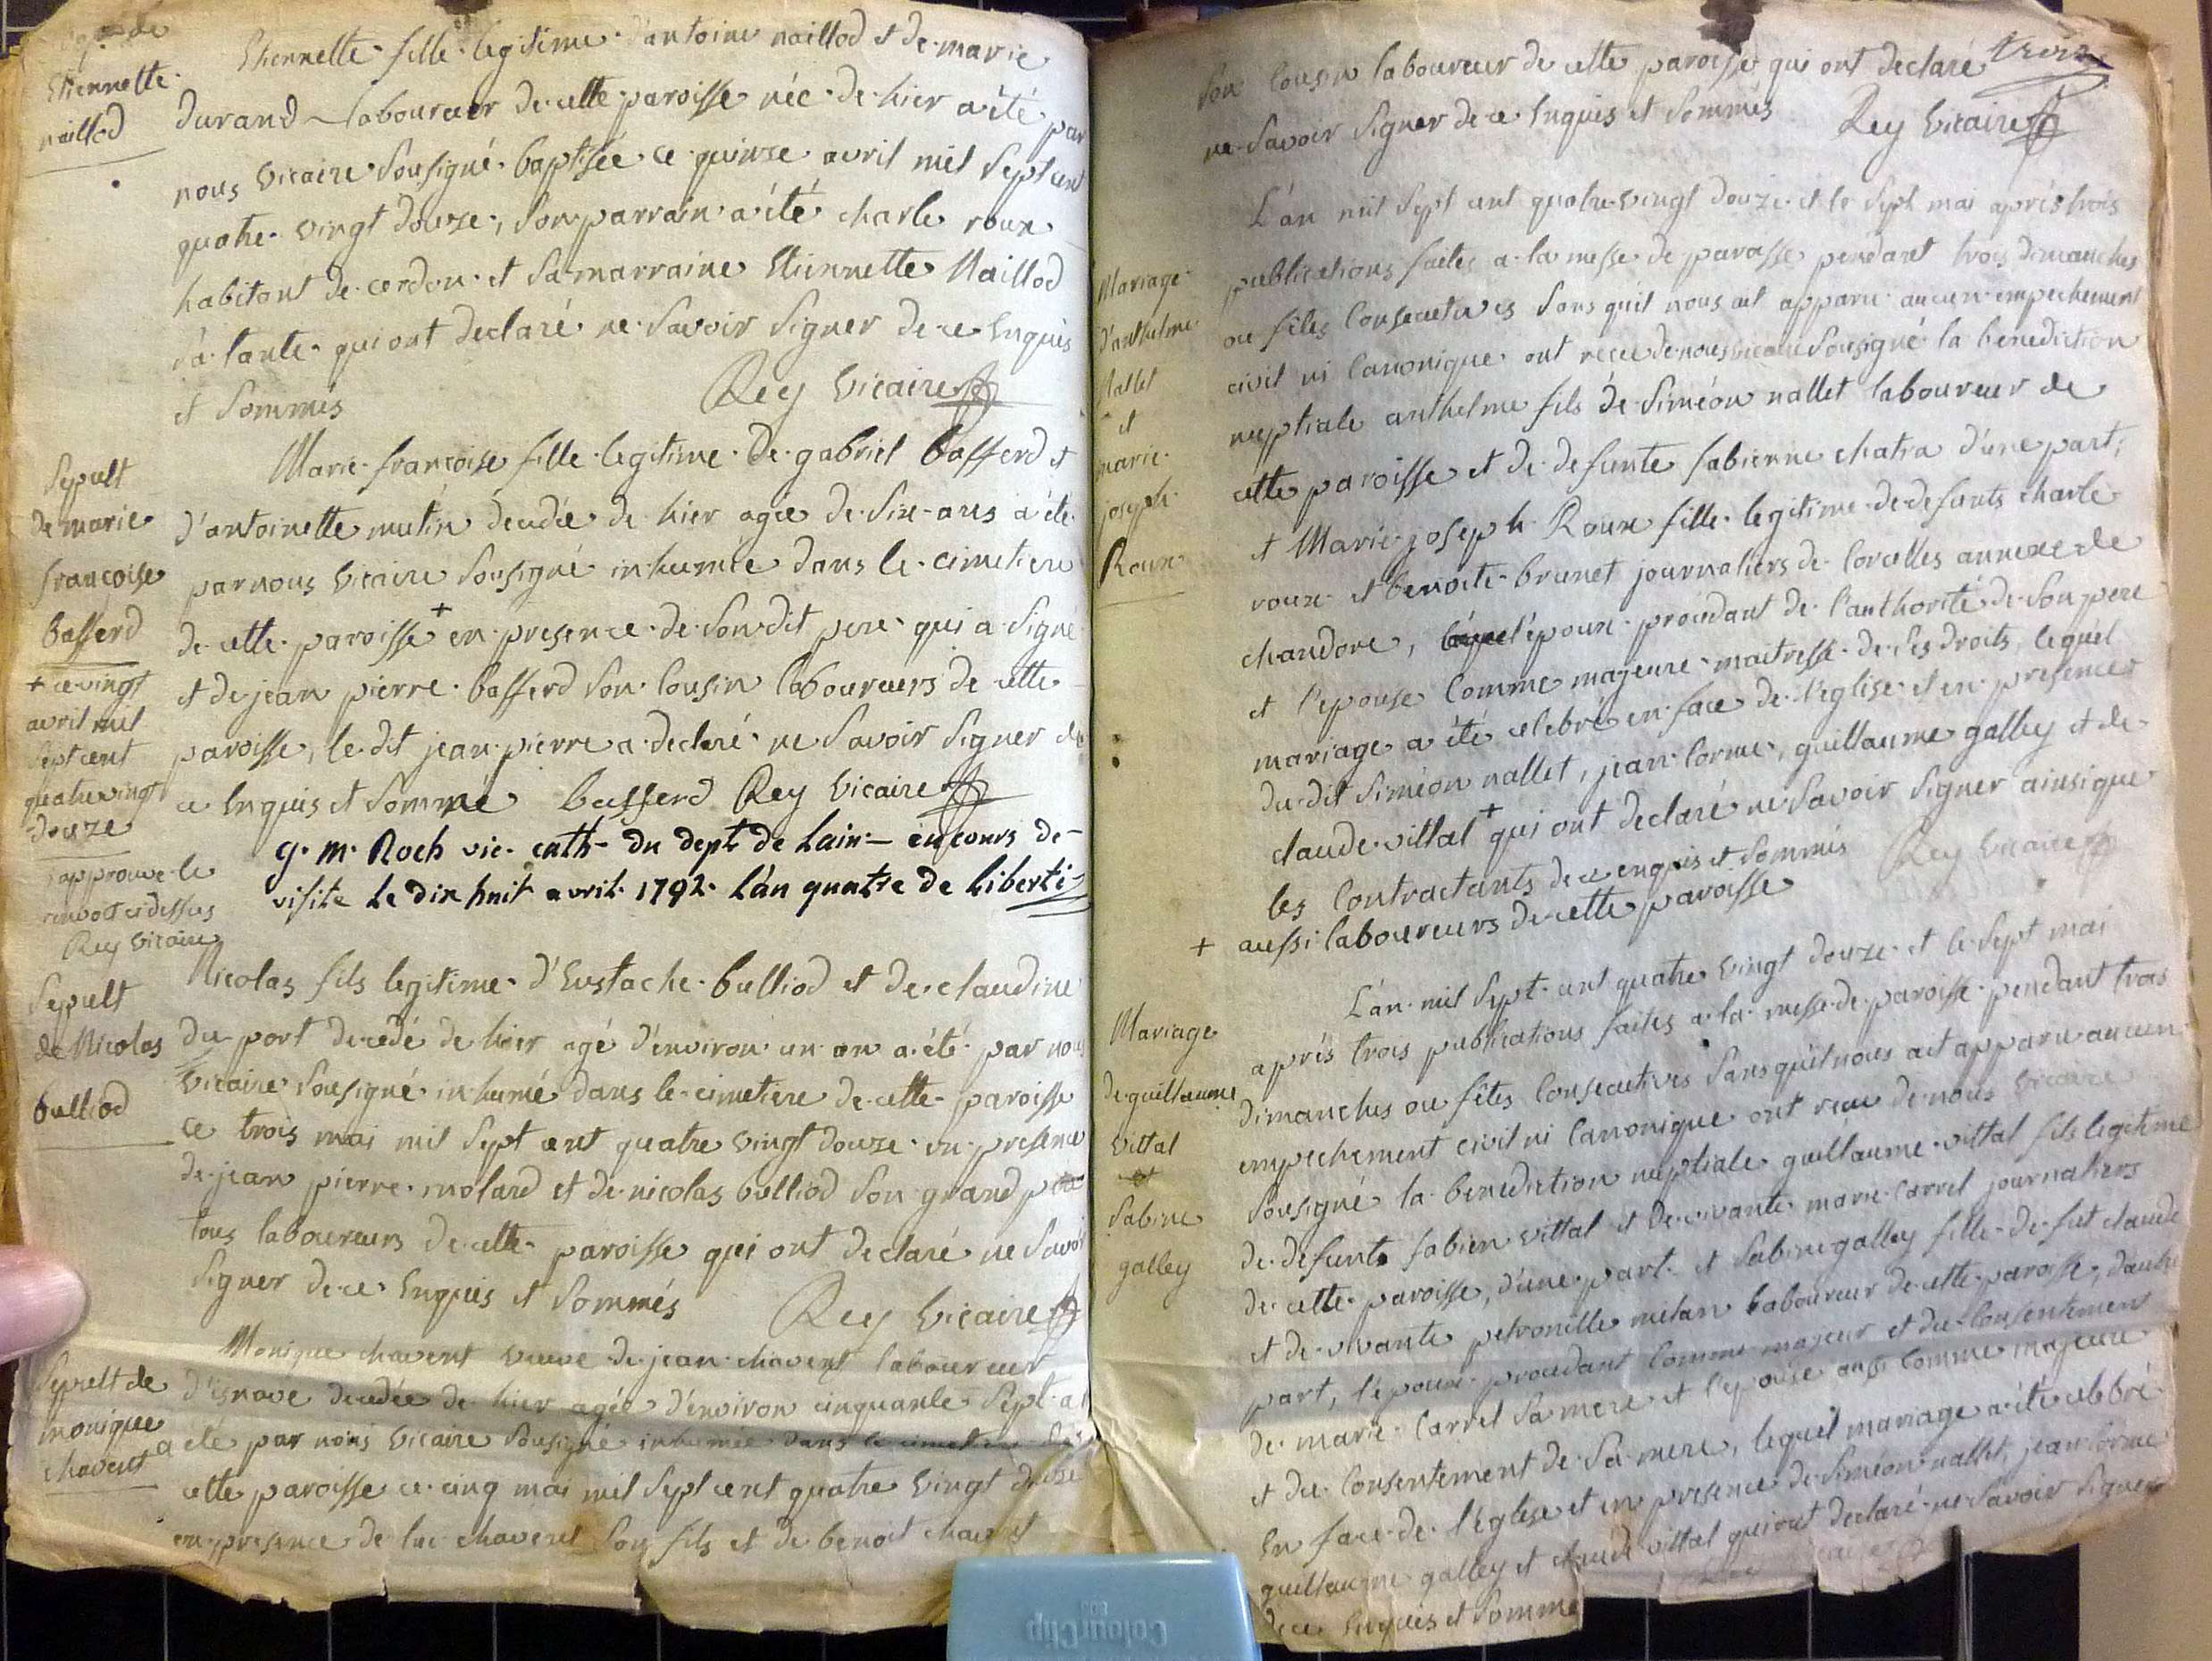 Etiennette
naillod
Etiennette fille legitime d'antoine naillod et de marie
durand laboureur de cette paroisse née de hier a été par
nous vicaire sousigné baptisée ce quinze avril mil sept cent
quatre vingt douze, son parrain a été charle roux
habitant de cordon et sa marraine Etiennette Naillod
sa tante qui ont declaré ne savoir signer de ce enquis
et sommés Rey vicaire
Sepult
de marie
françoise
bafferd
+ ce vingt
avril mil
sept cent
quatre vingt
douze
japprouve le
renvoi ci dessus
Rey vicaire
Marie françoise fille legitime de gabriel bafferd et
d'antoinette mutin decedée de hier agée de six ans a été
par nous vicaire sousigné inhumée dans le cimetiere
de cette paroisse + en presence de son dit pere qui a signé
et de jean pierre bafferd son cousin laboureurs de cette
paroisse, le dit jean pierre a declaré ne savoir signer de
ce enquis et sommé bafferd Rey vicaire
g. m. Roch vic. cath. du dept de Lain en cours de
visite Le dix huit avril 1792. L'an quatre de Liberté
Sepult
de Nicolas
bulliod
Nicolas fils legitime d'Eustache bulliod et de claudine
du port decedé de hier agé d'environ un an a été par nous
vicaire sousigné inhumé dans le cimetiere de cette paroisse
ce trois mai mil sept cent quatre vingt douze en presence
de jean pierre molard et de nicolas bulliod son grand pere
tous laboureurs de cette paroisse qui ont declaré ne savoir
signer de ce enquis et sommés Rey vicaire
Sepult de
monique
chavent
Monique chavent veuve de jean chavent laboureur
d'isnave decedée de hier agée d'environ cinquante sept a
a été par nous vicaire sousigné inhumée dans le cimetiere de
cette paroisse ce cinq mai mil sept cent quatre vingt douze
en presence de luc chavent son fils et de benoit chavent
treize
son cousin laboureur de cette paroisse qui ont declaré
ne savoir signer de ce enquis et sommés Rey vicaire
Mariage
d'anthelme
Nallet
et
marie
joseph
Roux
L'an mil sept cent quatre vingt douze et le sept mai aprés trois
publications faites a la messe de paroisse pendant trois dimanches
ou fêtes consecutives sans quil nous ait apparu aucun empechement
civil ni canonique ont recu de nous vicaire sousigné la benediction
nuptiale anthelme fils de siméon nallet laboureur de
cette paroisse et de defunte fabienne chatra d'une part,
et Marie joseph Roux fille legitime de defunts charle
roux et benoite brunet journaliers de corcelles annexe de
chandore, l'époux procedant de l'authorité de son pere
et l'epouse comme majeure maitresse de ses droits, lequel
mariage a été celebré en face de l'eglise et en presence
du dit siméon nallet, jean corme, guillaume galley et de
claude vittal + qui ont declaré ne savoir signer ainsi que
les contractants de ce enquis et sommés Rey vicaire
+ aussi laboureurs de cette paroisse
Mariage
de guillaume
vittal
et
sabine
galley
L'an mil sept cent quatre vingt douze et le sept mai
aprés trois publications faites a la messe de paroisse pendant trois
dimanches ou fêtes consecutives sans quil nous ait apparu aucun
empechement civil ni canonique ont recu de nous vicaire
sousigné la benediction nuptiale guillaume vittal fils legitime
de defunts fabien vittal et de vivante marie carrel journaliers
de cette paroisse, d'une part et sabine galley fille de fut claude
et de vivante petronille milan laboureur de cette paroisse, d'autre
part, l'époux procedant comme majeur et du consentement
de marie carrel sa mere et l'epouse aussi comme majeure
et du consentement de sa mere, lequel mariage a été celebré
en face de l'Eglise et en presence de siméon nallet, jean corme
guillaume galley et claude vittal qui ont declaré ne savoir signer
de ce enquis et sommé